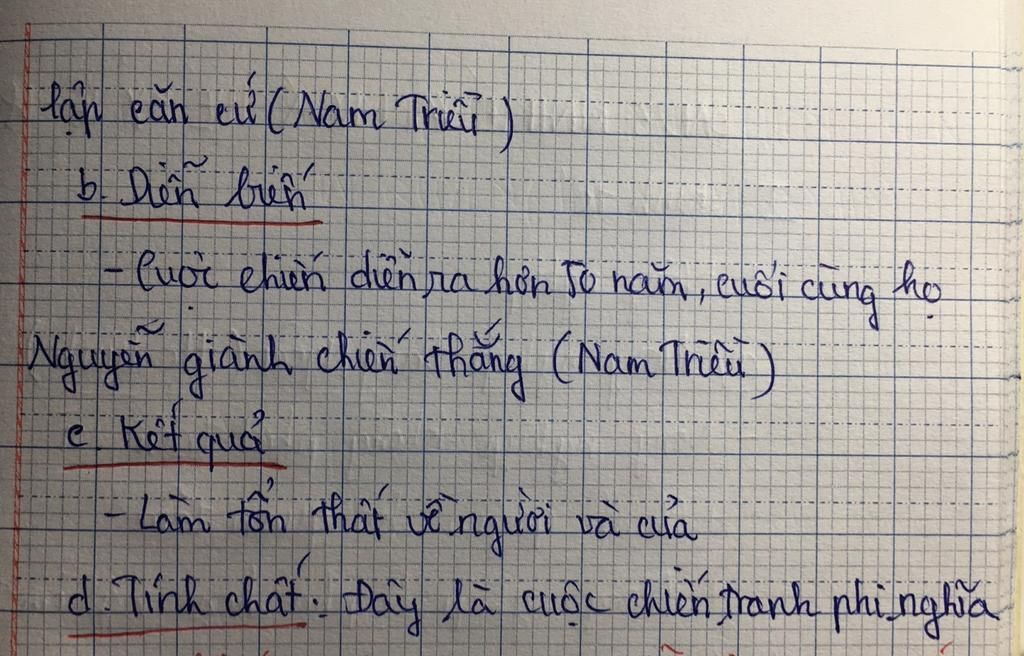 lập căn cứ (Nam Triều)
b. Diễn biến
- Cuộc chiến diễn ra hơn 50 năm, cuối cùng họ
Nguyễn giành chiến thắng (Nam Triều)
c. Kết quả
- Làm tổn thất về người và của
d. Tính chất: Đây là cuộc chiến tranh phi nghĩa